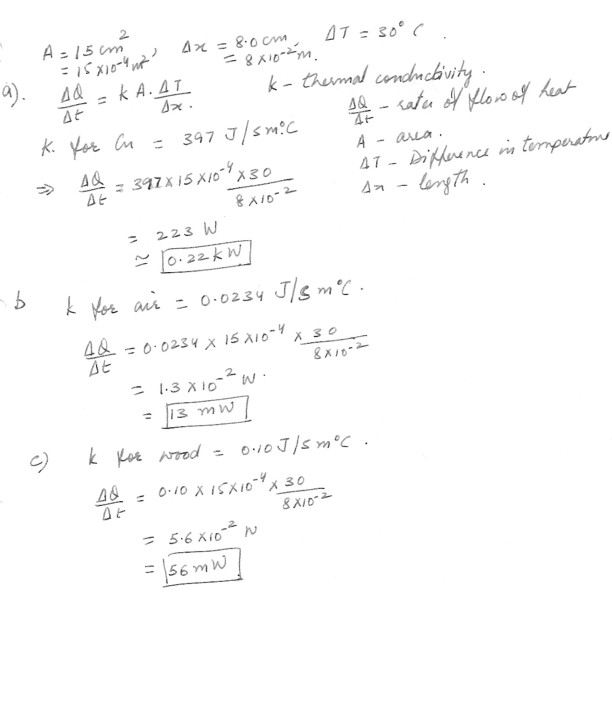 A = 15 cm², Δx = 8.0 cm, ΔT = 30° C.
= 15 x10⁻⁴ m² = 8 x10⁻² m.
a). ΔQ/Δt = k A. ΔT/Δx.
k - thermal conductivity.
ΔQ/Δt - rates of flow of heat
A - area.
ΔT - Difference in temperature
Δx - length.
k. for Cu = 397 J/s m°C
⇒ ΔQ/Δt = 397 x 15 x10⁻⁴ x 30 / 8 x10⁻²
= 223 W
≃ 0.22 kW
b k for air = 0.0234 J/s m°C.
ΔQ/Δt = 0.0234 x 15 x10⁻⁴ x 30 / 8x10⁻²
= 1.3 x 10⁻² W.
= 13 mW
c) k for wood = 0.10 J/s m°C.
ΔQ/Δt = 0.10 x 15x10⁻⁴ x 30 / 8x10⁻²
= 5.6 x10⁻² W
= 56 mW